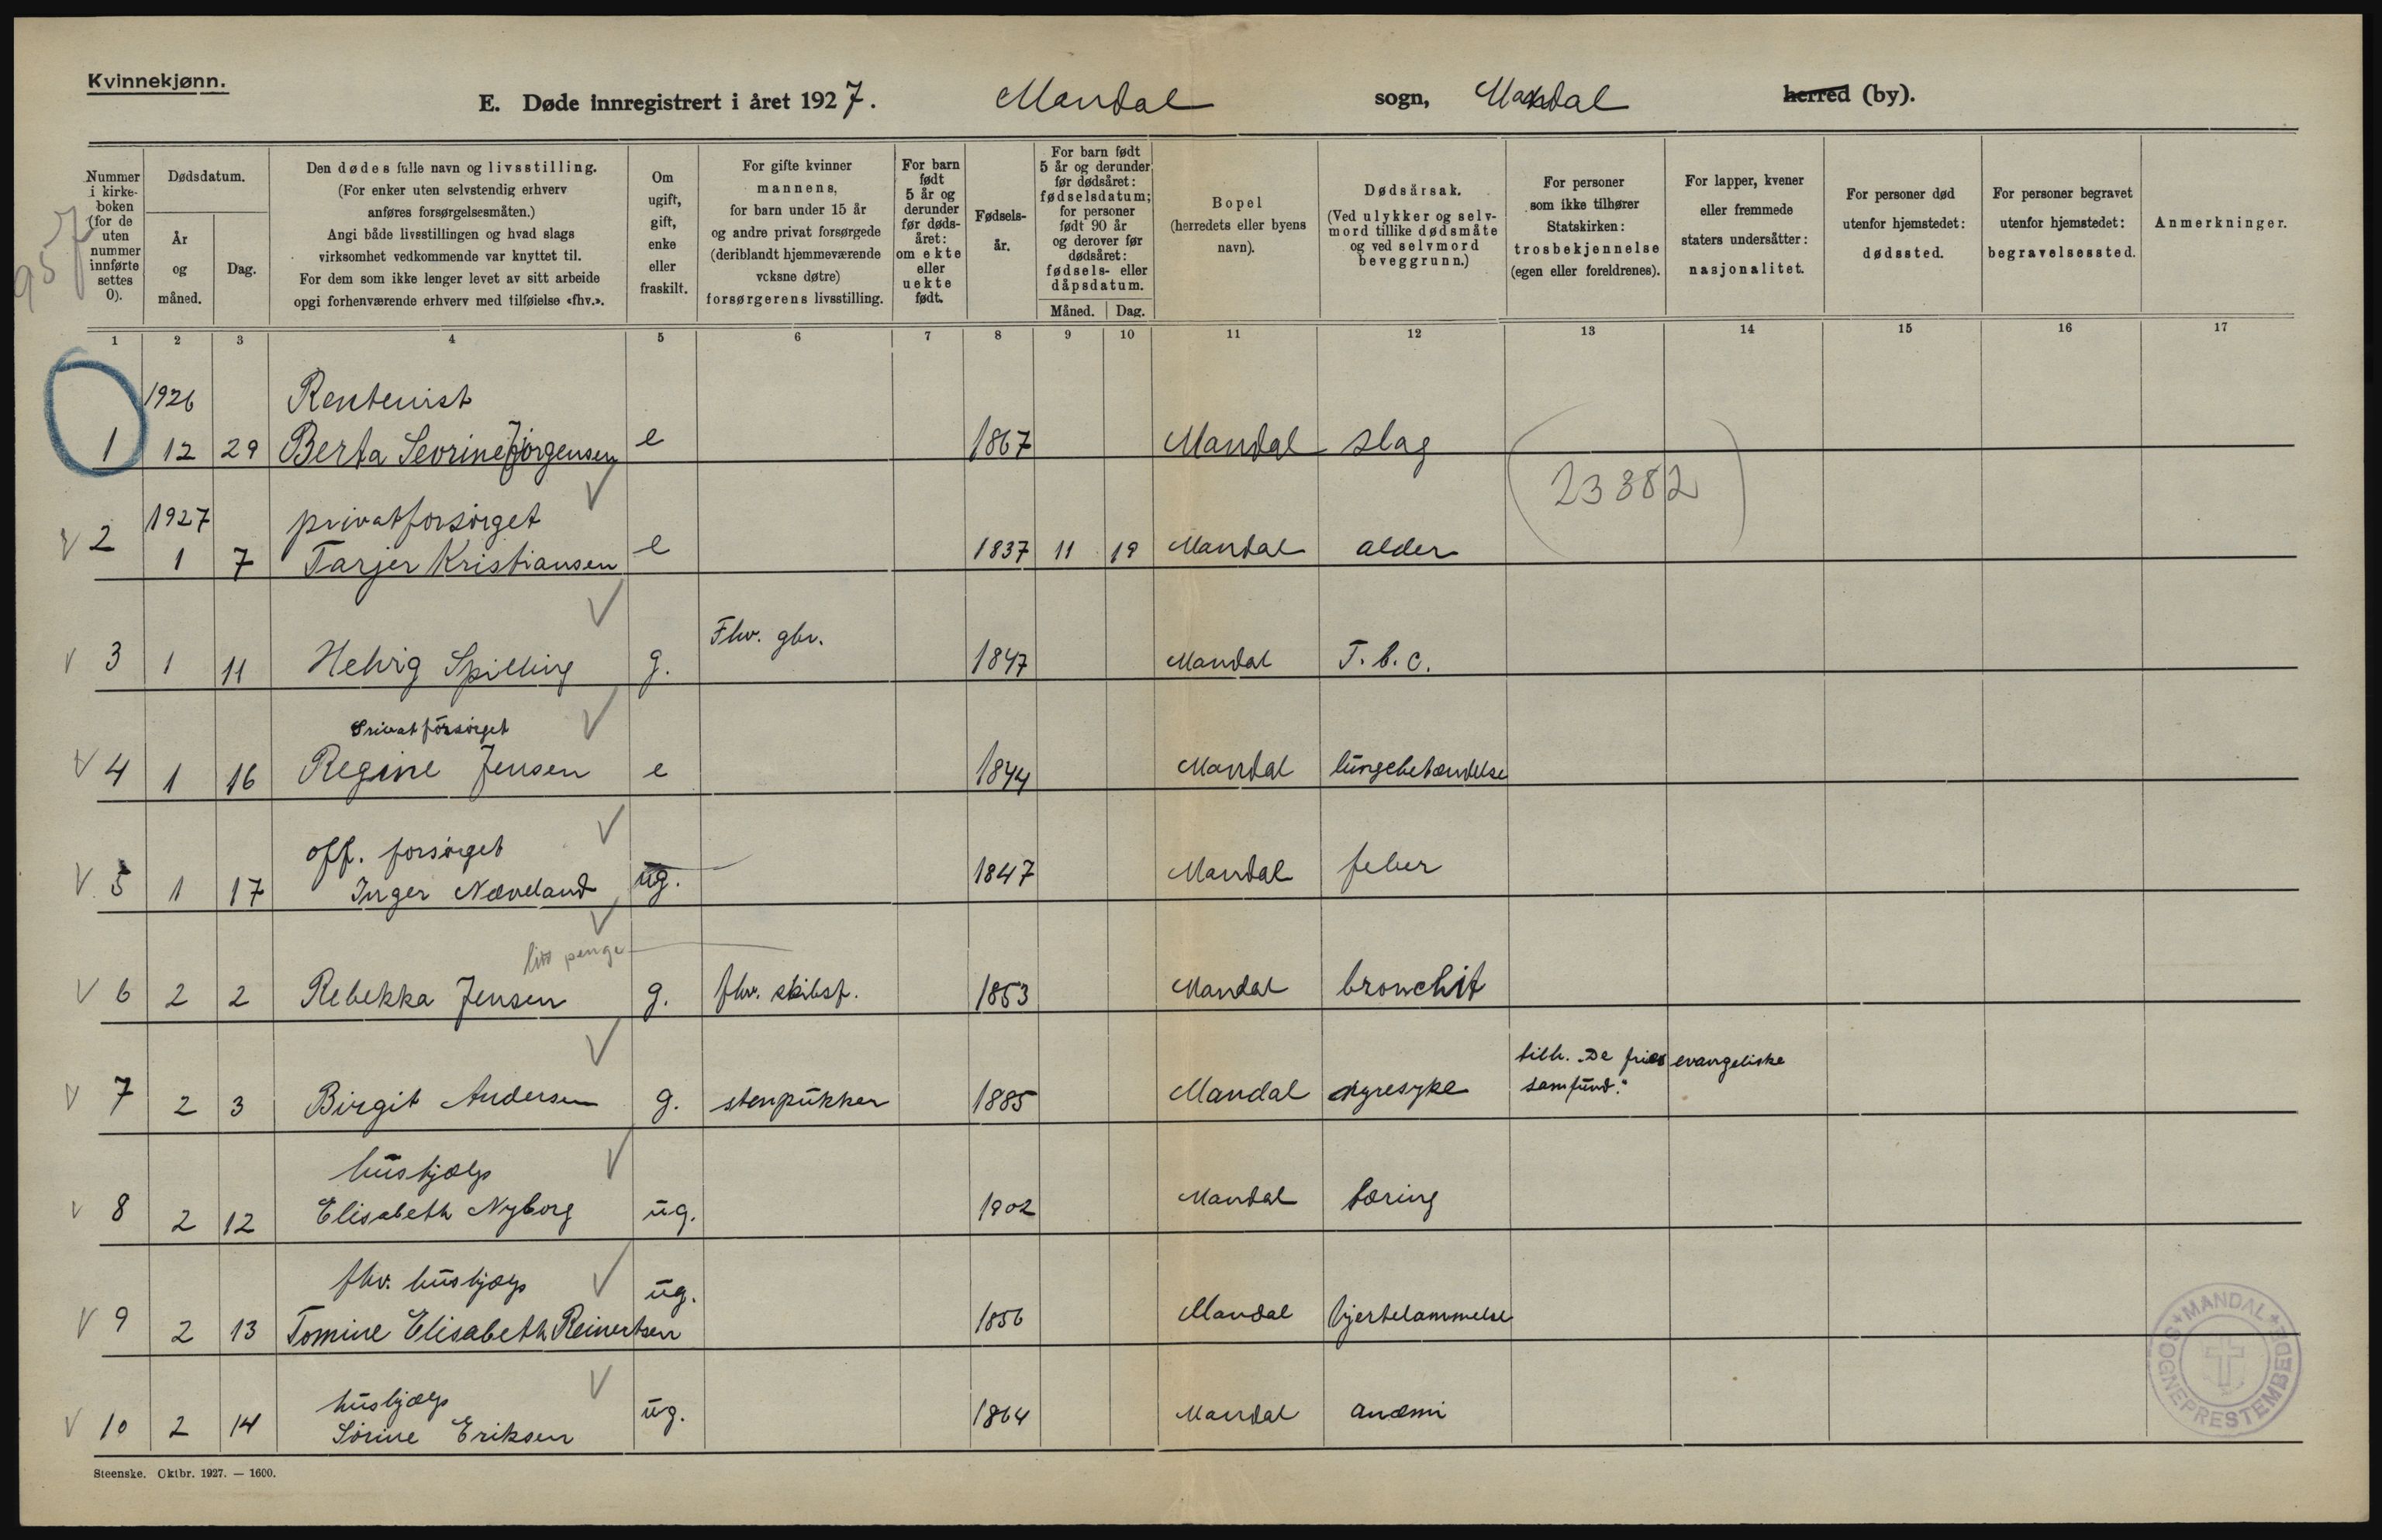 Kvinnekjønn.
E. Døde innregistrert i året 1927. Mandal sogn, Mandal herred (by).
957
Nummer i kirkeboken (for de uten nummer innførte settes 0).
Dødsdatum.
År og måned.
Dag.
Den dødes fulle navn og livsstilling.
(For enker uten selvstendig erhverv
anføres forsørgelsesmåten.)
Angi både livsstillingen og hvad slags
virksomhet vedkommende var knyttet til.
For dem som ikke lenger levet av sitt arbeide
opgi forhenværende erhverv med tilføielse «fhv.».
Om ugift, gift, enke eller fraskilt.
For gifte kvinner
mannens,
for barn under 15 år
og andre privat forsørgede
(deriblandt hjemmeværende
voksne døtre)
forsørgerens livsstilling.
For barn født 5 år og derunder før dødsåret: om ekte eller uekte født.
Fødselsår.
For barn født 5 år og derunder før dødsåret: fødselsdatum; for personer født 90 år og derover før dødsåret: fødsels- eller dåpsdatum.
Måned. Dag.
Bopel
(herredets eller byens
navn).
Dødsårsak.
(Ved ulykker og selv-
mord tillike dødsmåte
og ved selvmord
beveggrunn.)
For personer
som ikke tilhører
Statskirken:
trosbekjennelse
(egen eller foreldrenes).
For lapper, kvener
eller fremmede
staters undersåtter:
nasjonalitet.
For personer død
utenfor hjemstedet:
dødssted.
For personer begravet
utenfor hjemstedet:
begravelsessted.
Anmerkninger.
1 2 3 4 5 6 7 8 9 10 11 12 13 14 15 16 17
1926 Rentenist
1 12 29 Berta Sevrine Jørgensen e 1867 Mandal slag
23382
1927 privatforsørget
2 1 7 Tarjer Kristiansen e 1837 11 19 Mandal alder
Fhv. gbr.
3 1 11 Helvig Spilling g. 1847 Mandal T.b.c.
Privatforsørget
4 1 16 Regine Jensen e 1844 Mandal lungebetændelse
off. forsørget
5 1 17 Inger Næveland ug. 1847 Mandal feber
penge
6 2 2 Rebekka Jensen g. fhv. skibsf. 1853 Mandal bronchit
tilh. "De frie evangeliske
samfund."
7 2 3 Birgit Andersen g. stenpukker 1885 Mandal nyresyke
hushjælp
8 2 12 Elisabeth Nyborg ug. 1902 Mandal tæring
fhv. hushjælp
9 2 13 Tomine Elisabeth Reinertsen ug. 1856 Mandal hjertelammelse
hushjælp
10 2 14 Sørine Eriksen ug. 1864 Mandal anæmi
MANDAL SOGNEPRESTEMBEDE
Steenske. Oktbr. 1927. — 1600.